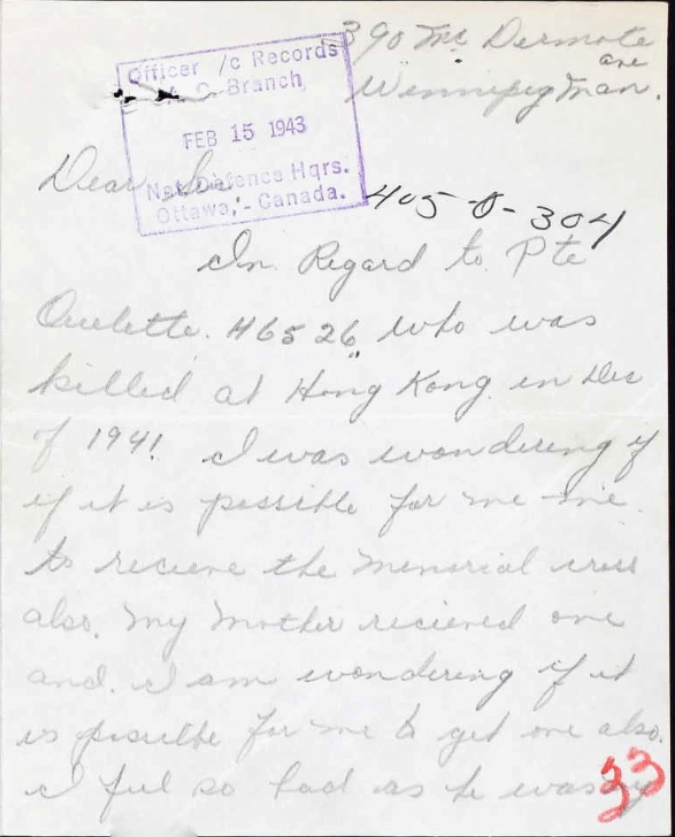 390 Mc Dermote
ave
Winnipeg Man.
Officer /c Records
A. G. Branch,
FEB 15 1943
Nat. Defence Hqrs.
Ottawa, - Canada.
Dear Sir
405-O-304
In Regard to Pte
Ouelette. H6526, who was
killed at Hong Kong in Dec
of 1941. I was wondering if
if it is possible for me me
to recieve the Memorial cross
also. My Mother recieved one
and. I am wondering if it
is possible for me to get one also.
I feel so bad as he was my
33